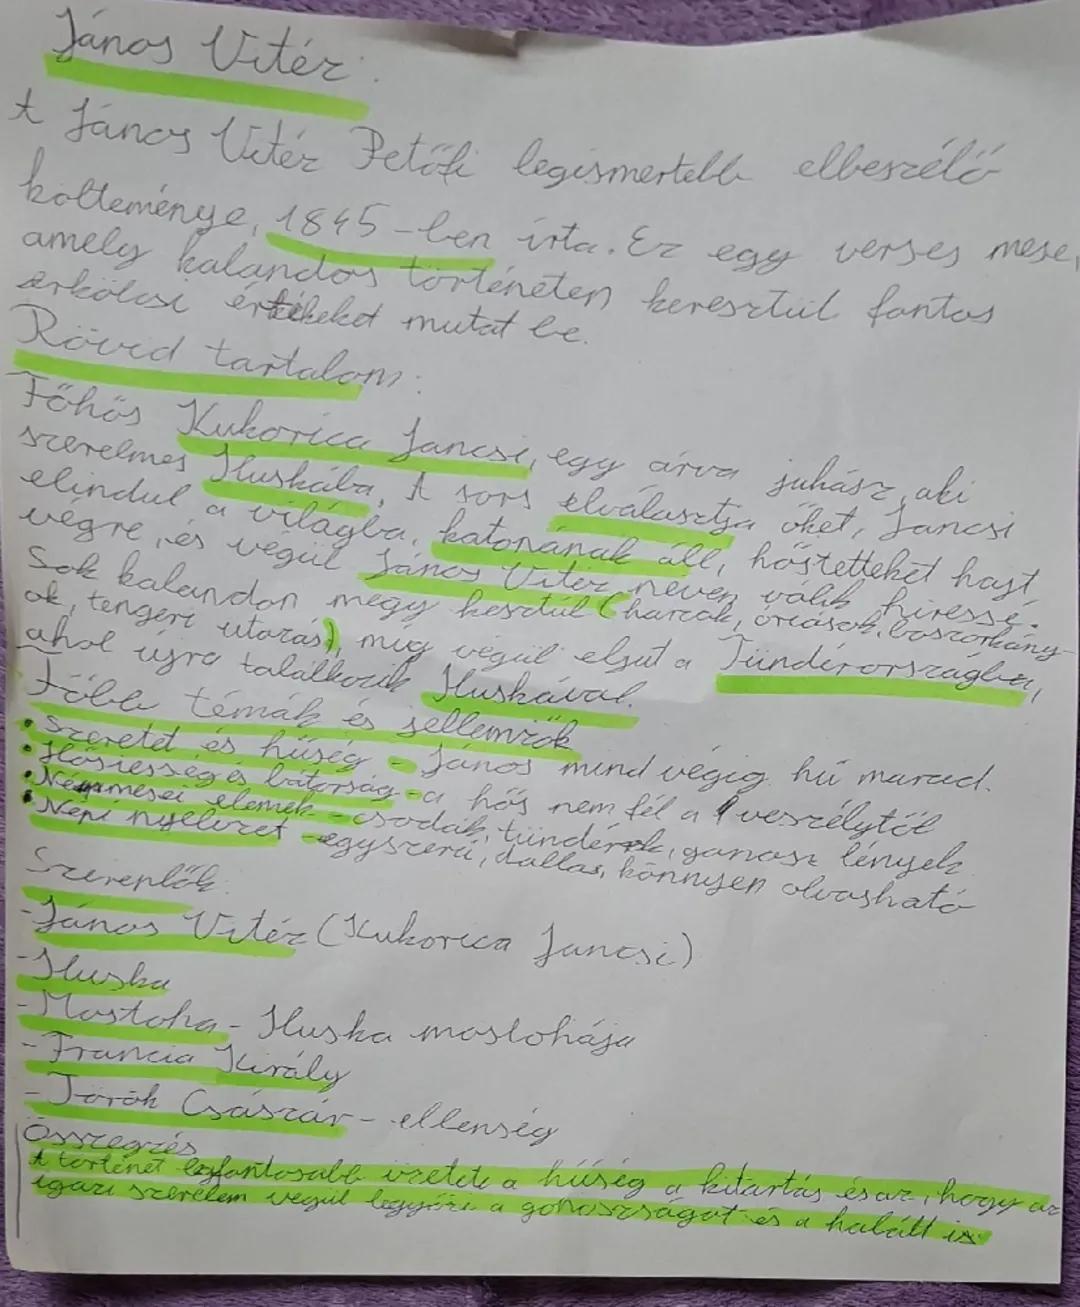 János Vitéz.
A János Vitéz Petőfi legismertebb elbeszélő
költeménye, 1845-ben írta. Ez egy verses mese,
amely kalandos történeten keresztül fontos
erkölcsi értékeket mutat be.
Rövid tartalom:
Főhős Kukorica Jancsi, egy árva juhász, aki
szerelmes Iluskába. A sors elválasztja őket, Jancsi
elindul a világba, katonának áll, hőstetteket hajt
végre, és végül János Vitéz néven válik híressé.
Sok kalandon megy kesztül (harcok, óriások, boszorkány-
ok, tengeri utazás), míg végül eljut a Tündérországba,
ahol újra találkozik Iluskával.
Főbb témák és jellemzők
• Szeretet és hűség - János mind végig hű marad.
• Hősiesség és bátorság - a hős nem fél a veszélytől
• Népmesei elemek - csodák, tündérek, gonosz lények
• Népi nyelvezet - egyszerű, dallas, könnyen olvasható
Szereplők:
- János Vitéz (Kukorica Jancsi)
- Iluska
- Mostoha - Iluska mostohája
- Francia Király
- Török Császár - ellenség
Összegzés
A történet legfontosabb üzetete a hűség a kitartás és az, hogy az
igazi szerelem végül legyőzi a gonoszságot és a halált is